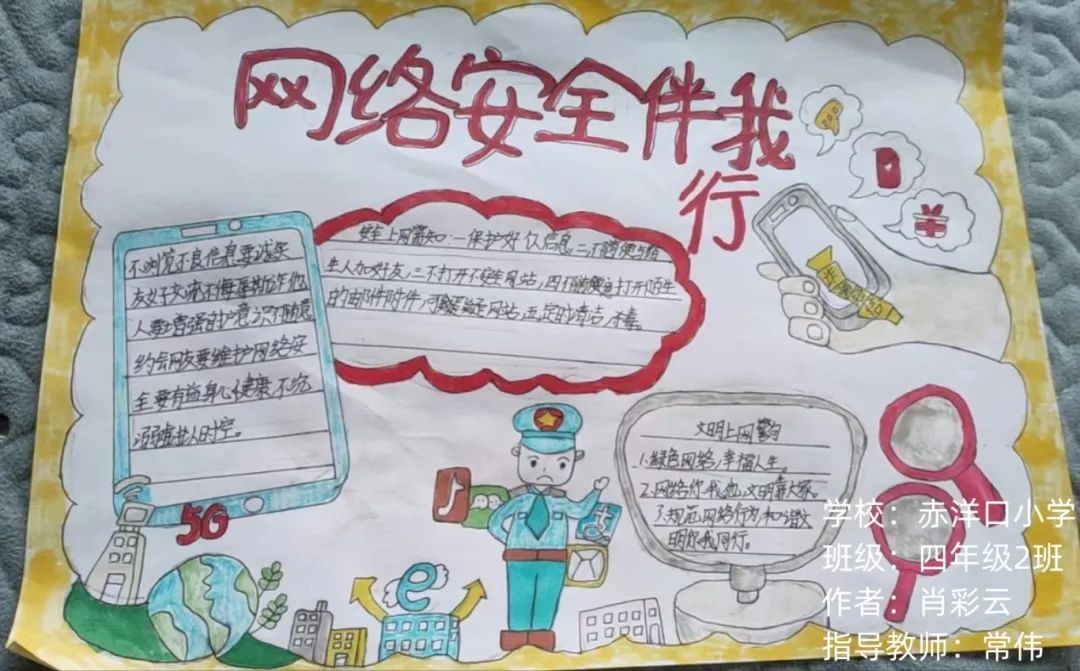 网络安全伴我
行
不浏览不良信息要诚实
友好交流不侮辱欺诈他
人要增强自护意识不随意
约会网友要维护网络安
全要有益身心健康不沉
溺虚拟时空。
安全上网需知:一保护好个人信息,二不随便与陌
生人加好友,三不打开不安全网站,四不随意打开陌生
的由附件附件,可疑网站,五定时清洁,木毒。
文明上网
1.绿色网络,幸福人生。
2.网络你我他,文明靠大家。
3.规范网络行为和谐文
明你我同行。
5G
e
支
学校:赤洋口小学
班级:四年级2班
作者:肖彩云
指导教师:常伟